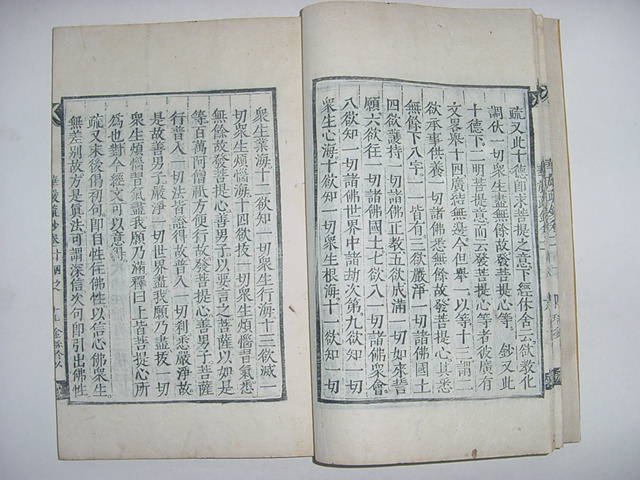 疏又此十德即求菩提之意下經休舍云欲敎化
調伏一切衆生盡無餘故發菩提心等 鈔又此
十德下二明菩提意而云發菩提心等者彼廣有
文畧舉十四廣結無邊今但舉一以等十三謂二
欲承事供養一切諸佛悉無餘故發菩提心其悉
無餘下八字一一皆有三欲嚴淨一切諸佛國土
四欲護持一切諸佛正教五欲成滿一切如來誓
願六欲往一切諸佛國土七欲入一切諸佛衆會
八欲知一切諸佛世界中諸劫次第九欲知一切
衆生心海十欲知一切衆生根海十一欲知一切
衆生業海十二欲知一切衆生行海十三欲滅一
切衆生煩惱海十四欲拔一切衆生煩惱習氣悉
無餘故發菩提心善男子以要言之菩薩以如是
等百萬阿僧祇方便行故發菩提心善男子菩薩
行普入一切法皆證得故普入一切刹悉嚴淨故
是故善男子嚴淨一切世界盡我願乃盡拔一切
衆生煩惱習氣盡我願乃滿釋曰上皆菩提心所
爲也對今經文可以意得
疏又末後偈初句即自性住佛性以信心佛衆生
無差別故方是真法可謂深信次句即引出佛性
華嚴疏鈔卷十四之